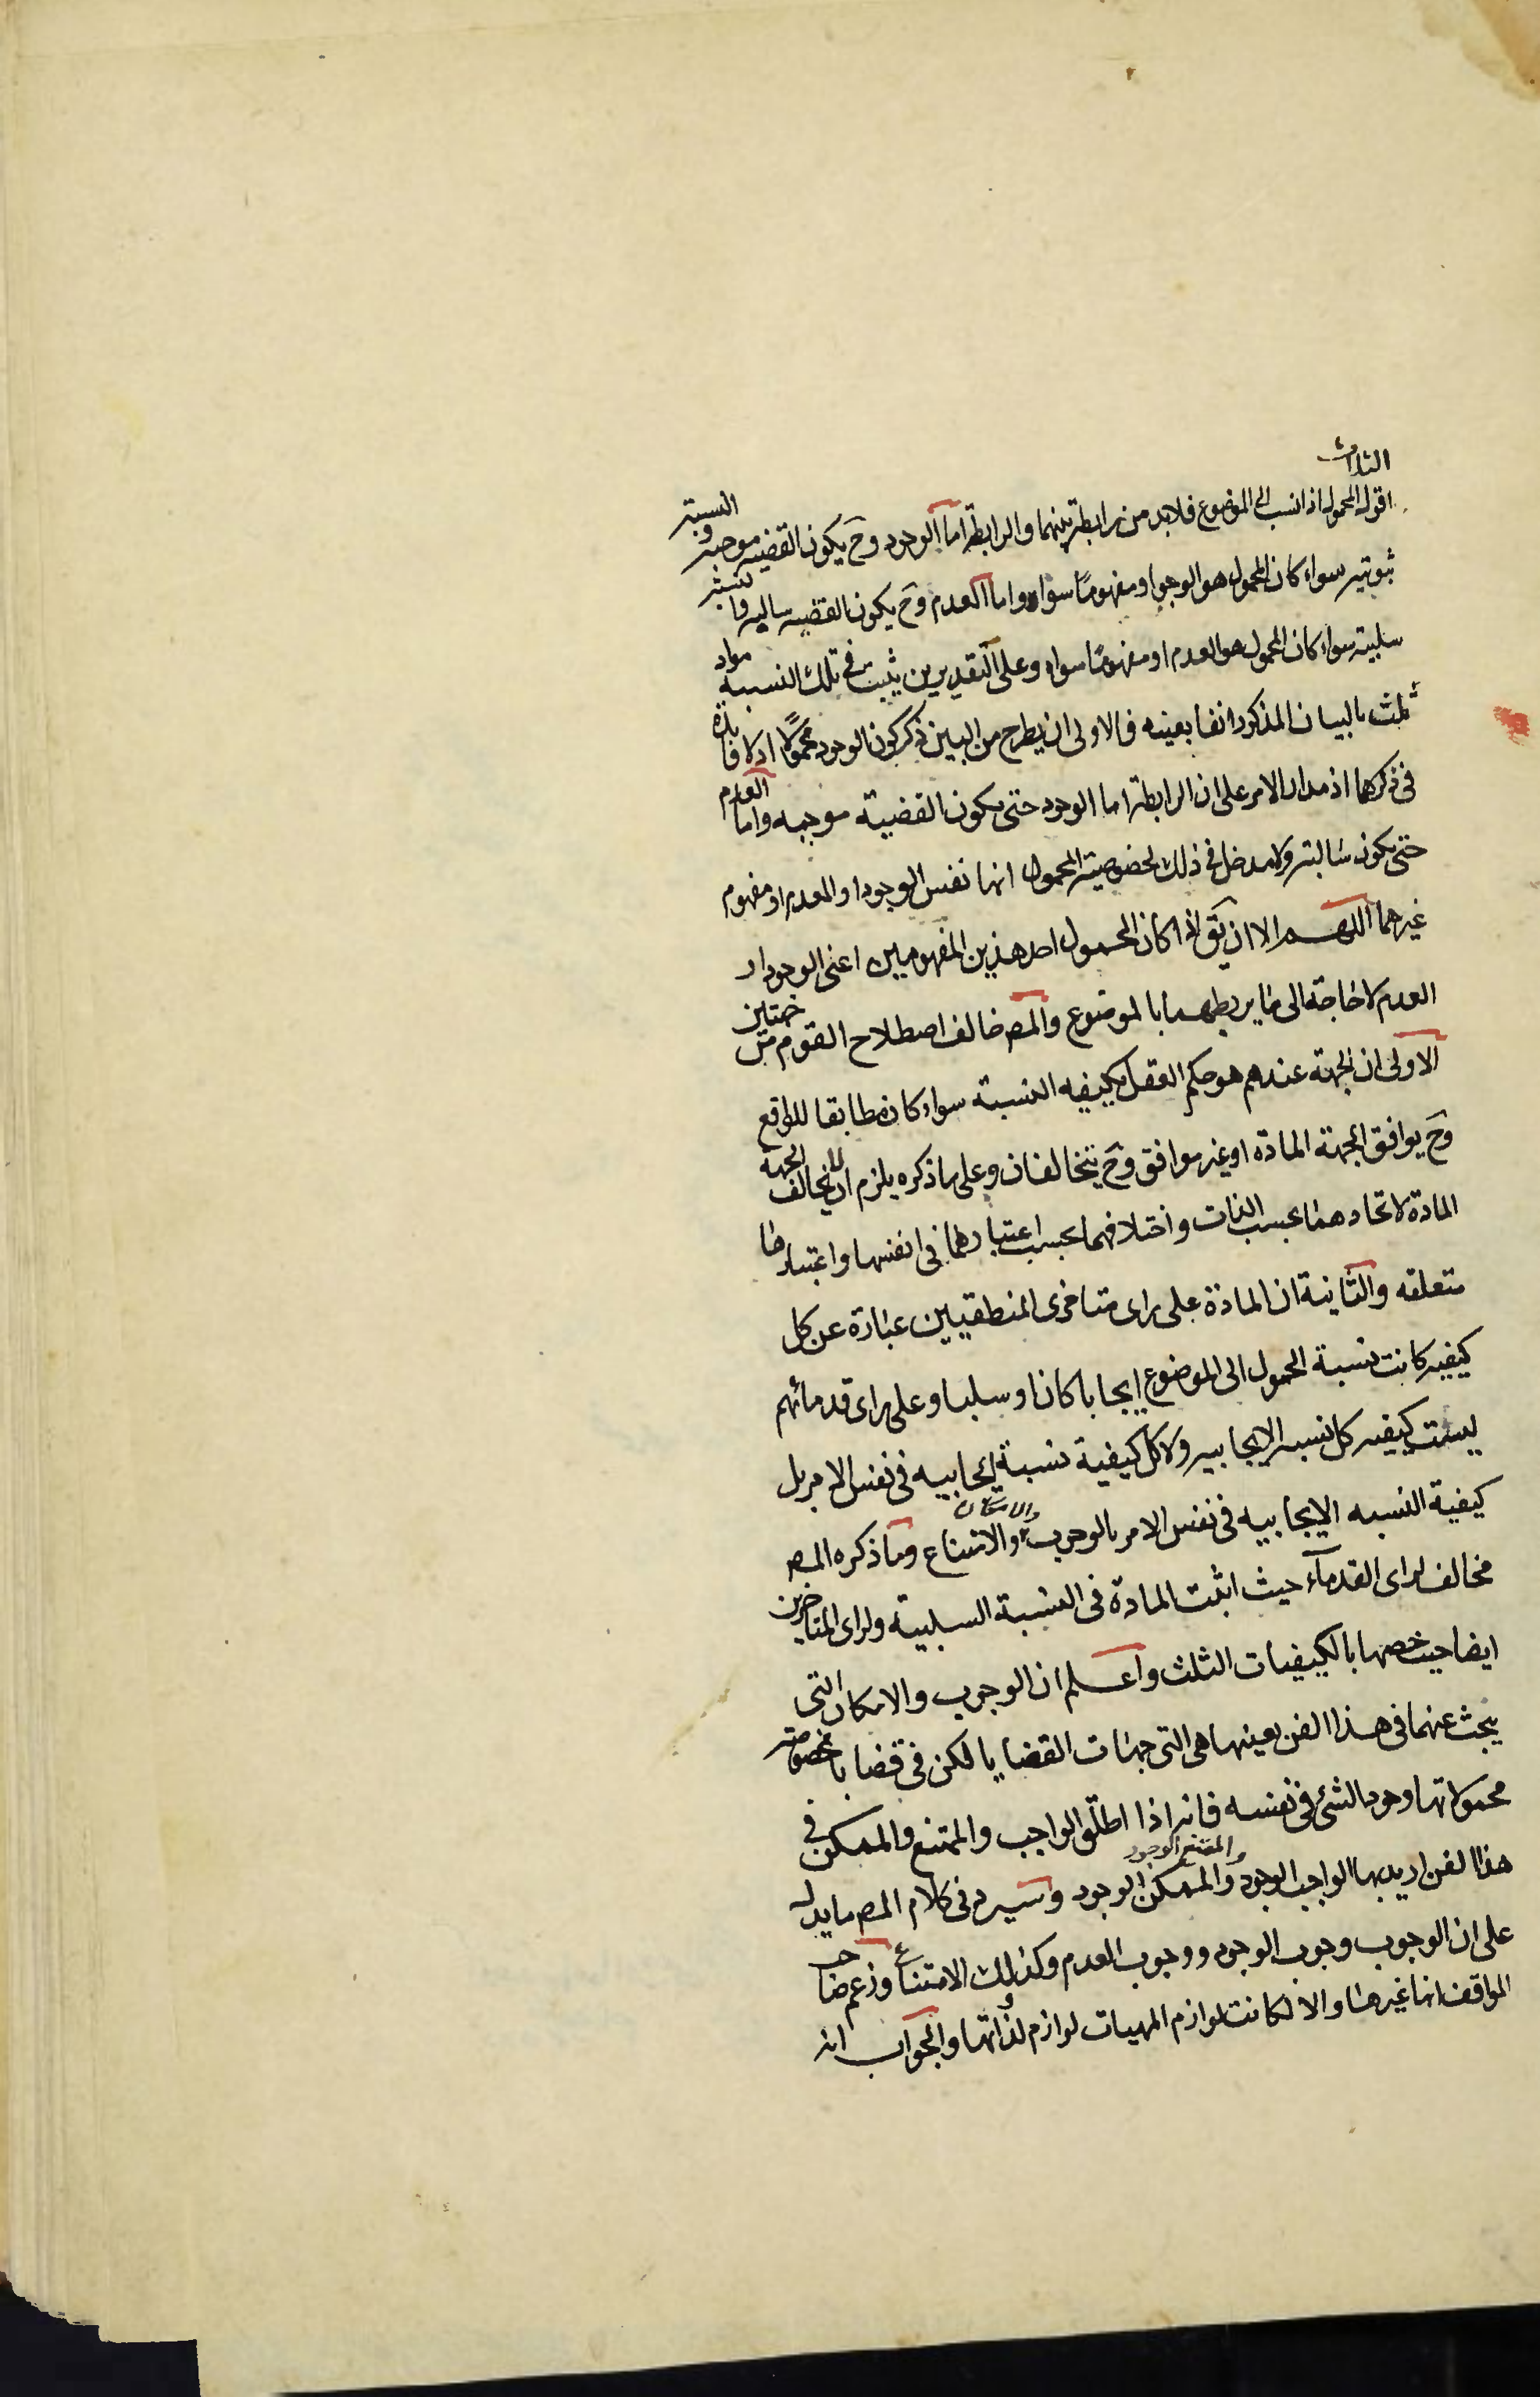 الثلاث
اقول المحمول اذا نسب الى الموضوع فلابد من رابطة بينهما والرابطة اما الوجود وح يكون القضيه موجبه والنسبة
ثبوتيه سواء كان المحمول هو الوجود او مفهومًا سواه واما العدم وح يكون القضيه سالبه والنسبة
سلبية سواء كان المحمول هو العدم او مفهومًا سواه وعلى التقديرين يثبت في تلك النسبة مواد
ثلث بالبيان المذكور انفا بعينه فالاولى ان يطرح من البين ذكر كون الوجود محمولًا اذ لا فايدة
في ذكرهما اذ مدار الامر على ان الرابطة اما الوجود حتى يكون القضية موجبه واما العدم
حتى يكون سالبة ولا مدخل في ذلك لخصوصية المحمول انها نفس الوجود او العدم او مفهوم
غيرهما اللهم الا ان يق اذا كان المحمول احد هذين المفهومين اعنى الوجود او
العدم لا حاجة الى ما يربطهما بالموضوع والمصـ خالف اصطلاح القوم من جهتين
الاولى ان الجهة عندهم هو حكم العقل بكيفيه النسبة سواء كان مطابقا للواقع
وح يوافق الجهة المادة او غير موافق وح يتخالفان وعلى ما ذكره يلزم ان لا يخالف الجهة
المادة لاتحادهما بحسب الذات واختلافهما بحسب اعتبارهما في انفسها واعتبارها
متعلقه والثانية ان المادة على راى متاخرى المنطقيين عبارة عن كل
كيفيه كانت نسبة المحمول الى الموضوع ايجابا كان او سلبا وعلى راى قدمائهم
ليست كيفيه كل نسبه الايجابيه ولا كل كيفية نسبة ايجابيه في نفس الامر بل
كيفية النسبه الايجابيه في نفس الامر بالوجوب والامكان والامتناع وما ذكره المصـ
مخالف لراى القدماء حيث اثبت المادة في النسبة السلبية ولراى المتاخرين
ايضا حيث خصها بالكيفيات الثلث واعلم ان الوجوب والامكان التى
يبحث عنهما في هذا الفن بعينها هى التى جهات القضايا لكن في قضايا مخصوصة
محمولاتها وجود الشئ في نفسه فانه اذا اطلق الواجب والممتنع والممكن في
هذا الفن اريد بها الواجب الوجود والممتنع الوجود والممكن الوجود وسيرد في كلام المصـ ما يدل
على ان الوجوب وجوب الوجود ووجوب العدم وكذلك الامتناع وزعم صاحب
المواقف انها غيرها والا لكانت لوازم المهيات لوازم لذواتها والجواب انه